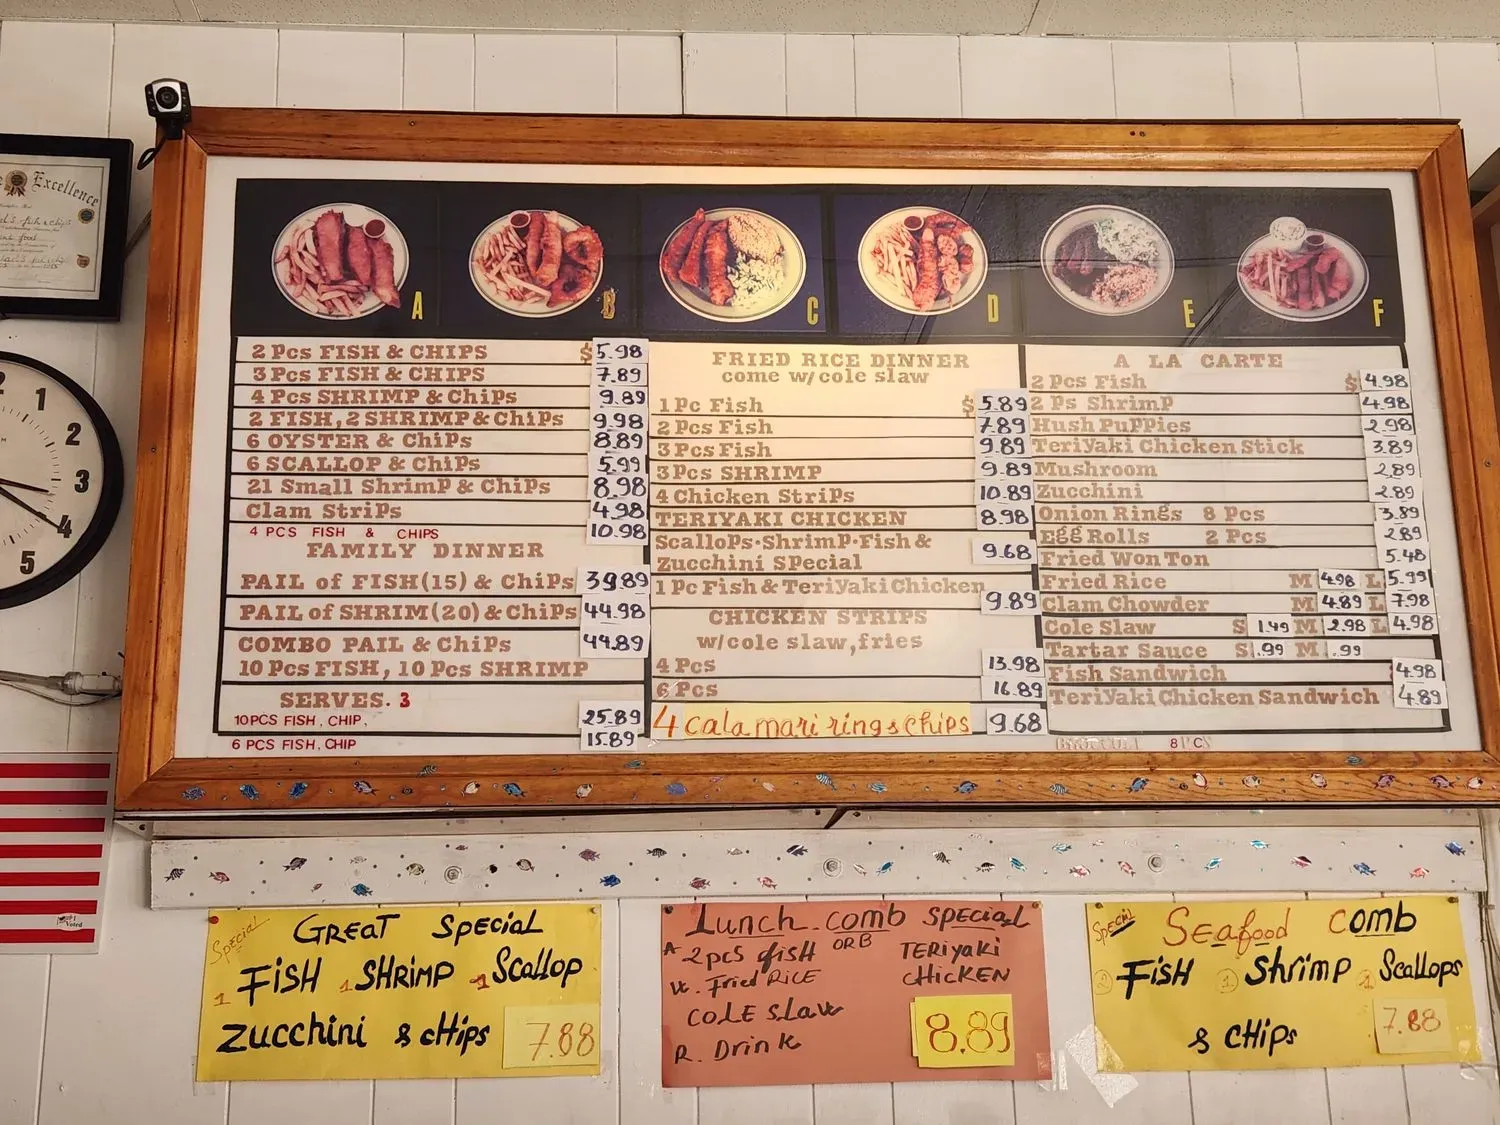 Excellence
fish & chips
1
2
3
4
5
A
B
C
D
E
F
2 Pcs FISH & CHIPS $ 5.98
3 Pcs FISH & CHIPS 7.89
4 Pcs SHRIMP & ChiPs 9.89
2 FISH, 2 SHRIMP & ChiPs 9.98
6 OYSTER & ChiPs 8.89
6 SCALLOP & ChiPs 5.99
21 Small ShrimP & ChiPs 8.98
Clam StriPs 4.98
4 PCS FISH & CHIPS 10.98
FAMILY DINNER
PAIL of FISH(15) & ChiPs 39.89
PAIL of SHRIM(20) & ChiPs 44.98
COMBO PAIL & ChiPs 44.89
10 Pcs FISH, 10 Pcs SHRIMP
SERVES. 3
10PCS FISH, CHIP, 25.89
6 PCS FISH, CHIP 15.89
FRIED RICE DINNER
come w/cole slaw
1 Pc Fish $ 5.89
2 Pcs Fish 7.89
3 Pcs Fish 9.89
3 Pcs SHRIMP 9.89
4 Chicken StriPs 10.89
TERIYAKI CHICKEN 8.98
ScalloPs·ShrimP·Fish &
Zucchini SPecial 9.68
1 Pc Fish & TeriYaki Chicken 9.89
CHICKEN STRIPS
w/cole slaw, fries
4 Pcs 13.98
6 Pcs 16.89
4 calamari rings & chips 9.68
A LA CARTE
2 Pcs Fish $ 4.98
2 Ps ShrimP 4.98
Hush PuPPies 2.98
TeriYaki Chicken Stick 3.89
Mushroom 2.89
Zucchini 2.89
Onion Rings 8 Pcs 3.89
Egg Rolls 2 Pcs 2.89
Fried Won Ton 5.48
Fried Rice M 4.98 L 5.99
Clam Chowder M 4.89 L 7.98
Cole Slaw S 1.49 M 2.98 L 4.98
Tartar Sauce S .99 M .99
Fish Sandwich 4.98
TeriYaki Chicken Sandwich 4.89
8 PCS
I Voted
Special
GREAT SPECIAL
1 FISH 1 SHRIMP 1 Scallop
zucchini & cHips 7.88
Lunch comb SPECIAL
A 2 pcs fish OR B TERiyaki
w. Fried RICE CHICKEN
COLE SLaw
R. Drink 8.89
Special
Seafood comb
2 FISH 1 Shrimp 1 Scallops
& cHips 7.88